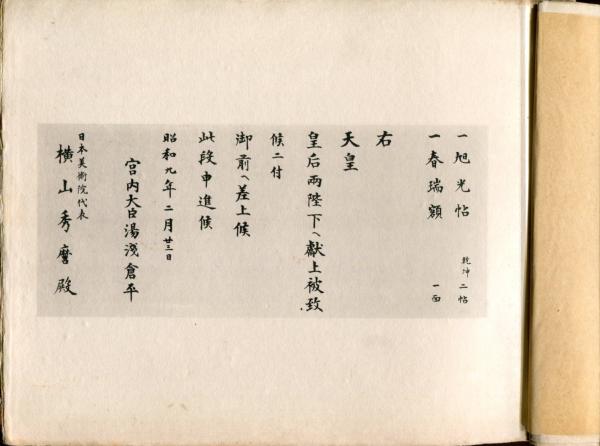 一旭光帖 乾坤二帖
一春瑞額 一面
右
天皇
皇后両陛下へ献上被致
候二付
御前へ差上候
此段申進候
昭和九年二月廿三日
宮内大臣湯浅倉平
日本美術院代表
横山秀麿殿